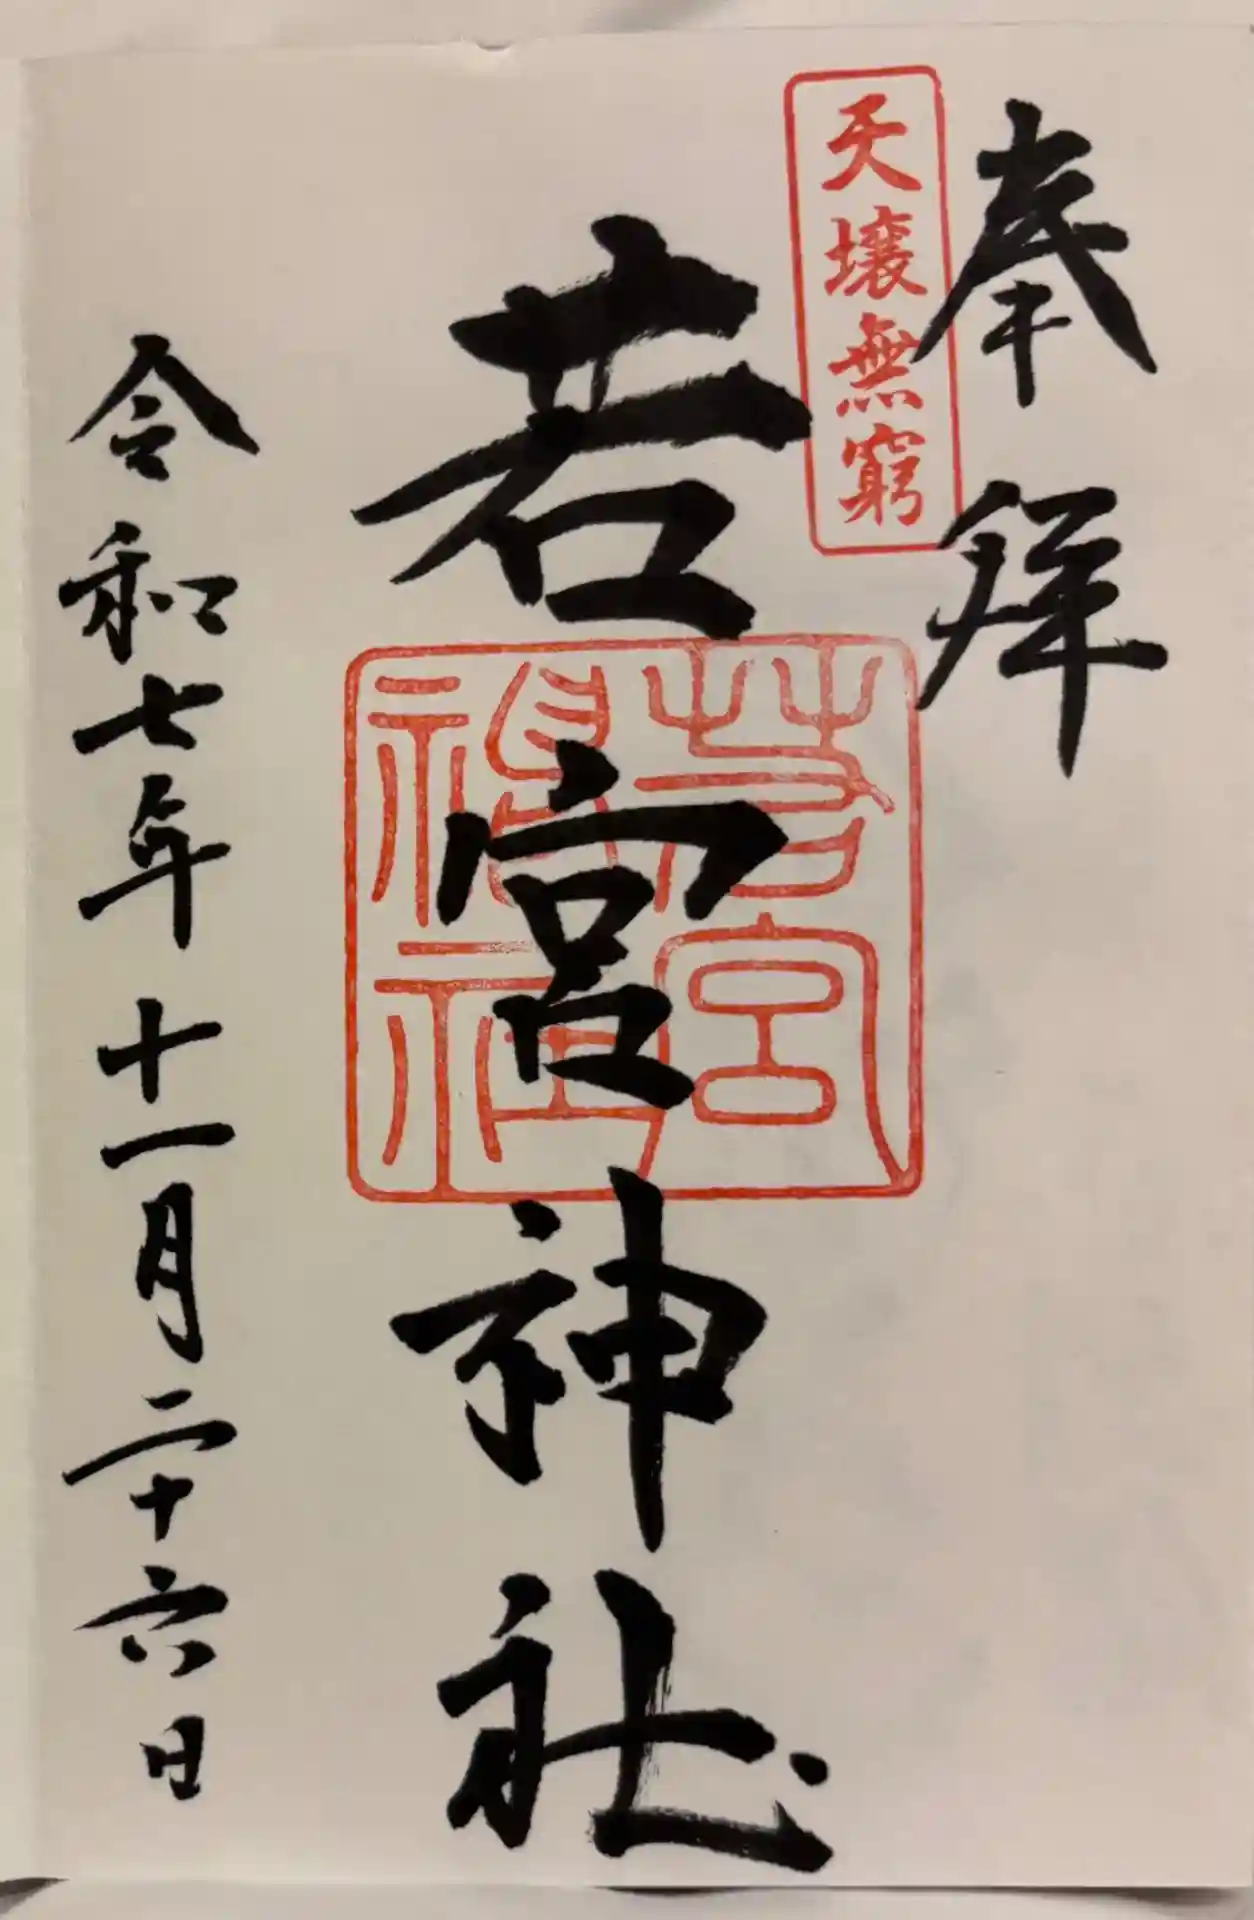 奉拝
天壌無窮
若宮神社
若宮
神社
令和七年十一月二十六日